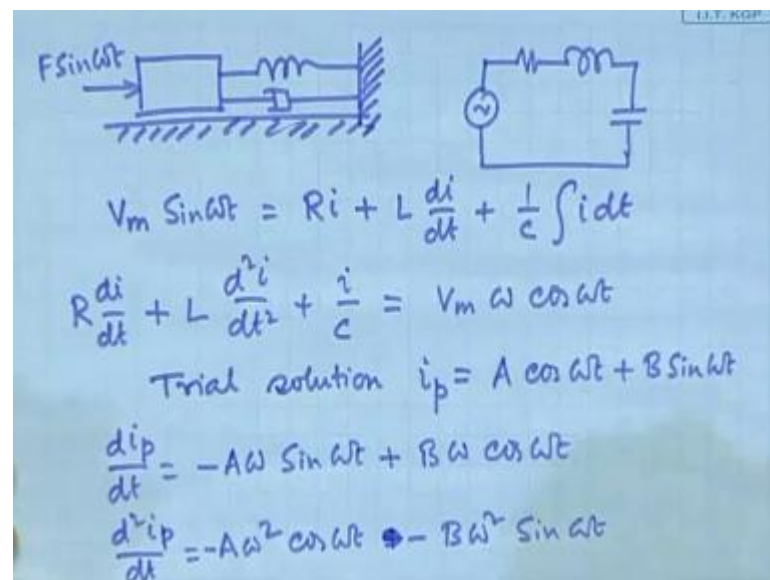 I.I.T. KGP
F sin ωt
V_m Sin ωt = Ri + L di/dt + 1/c ∫ i dt
R di/dt + L d²i/dt² + i/c = V_m ω cos ωt
Trial solution i_p = A cos ωt + B Sin ωt
di_p/dt = -Aω Sin ωt + B ω cos ωt
d²i_p/dt = -Aω² cos ωt - Bω² Sin ωt